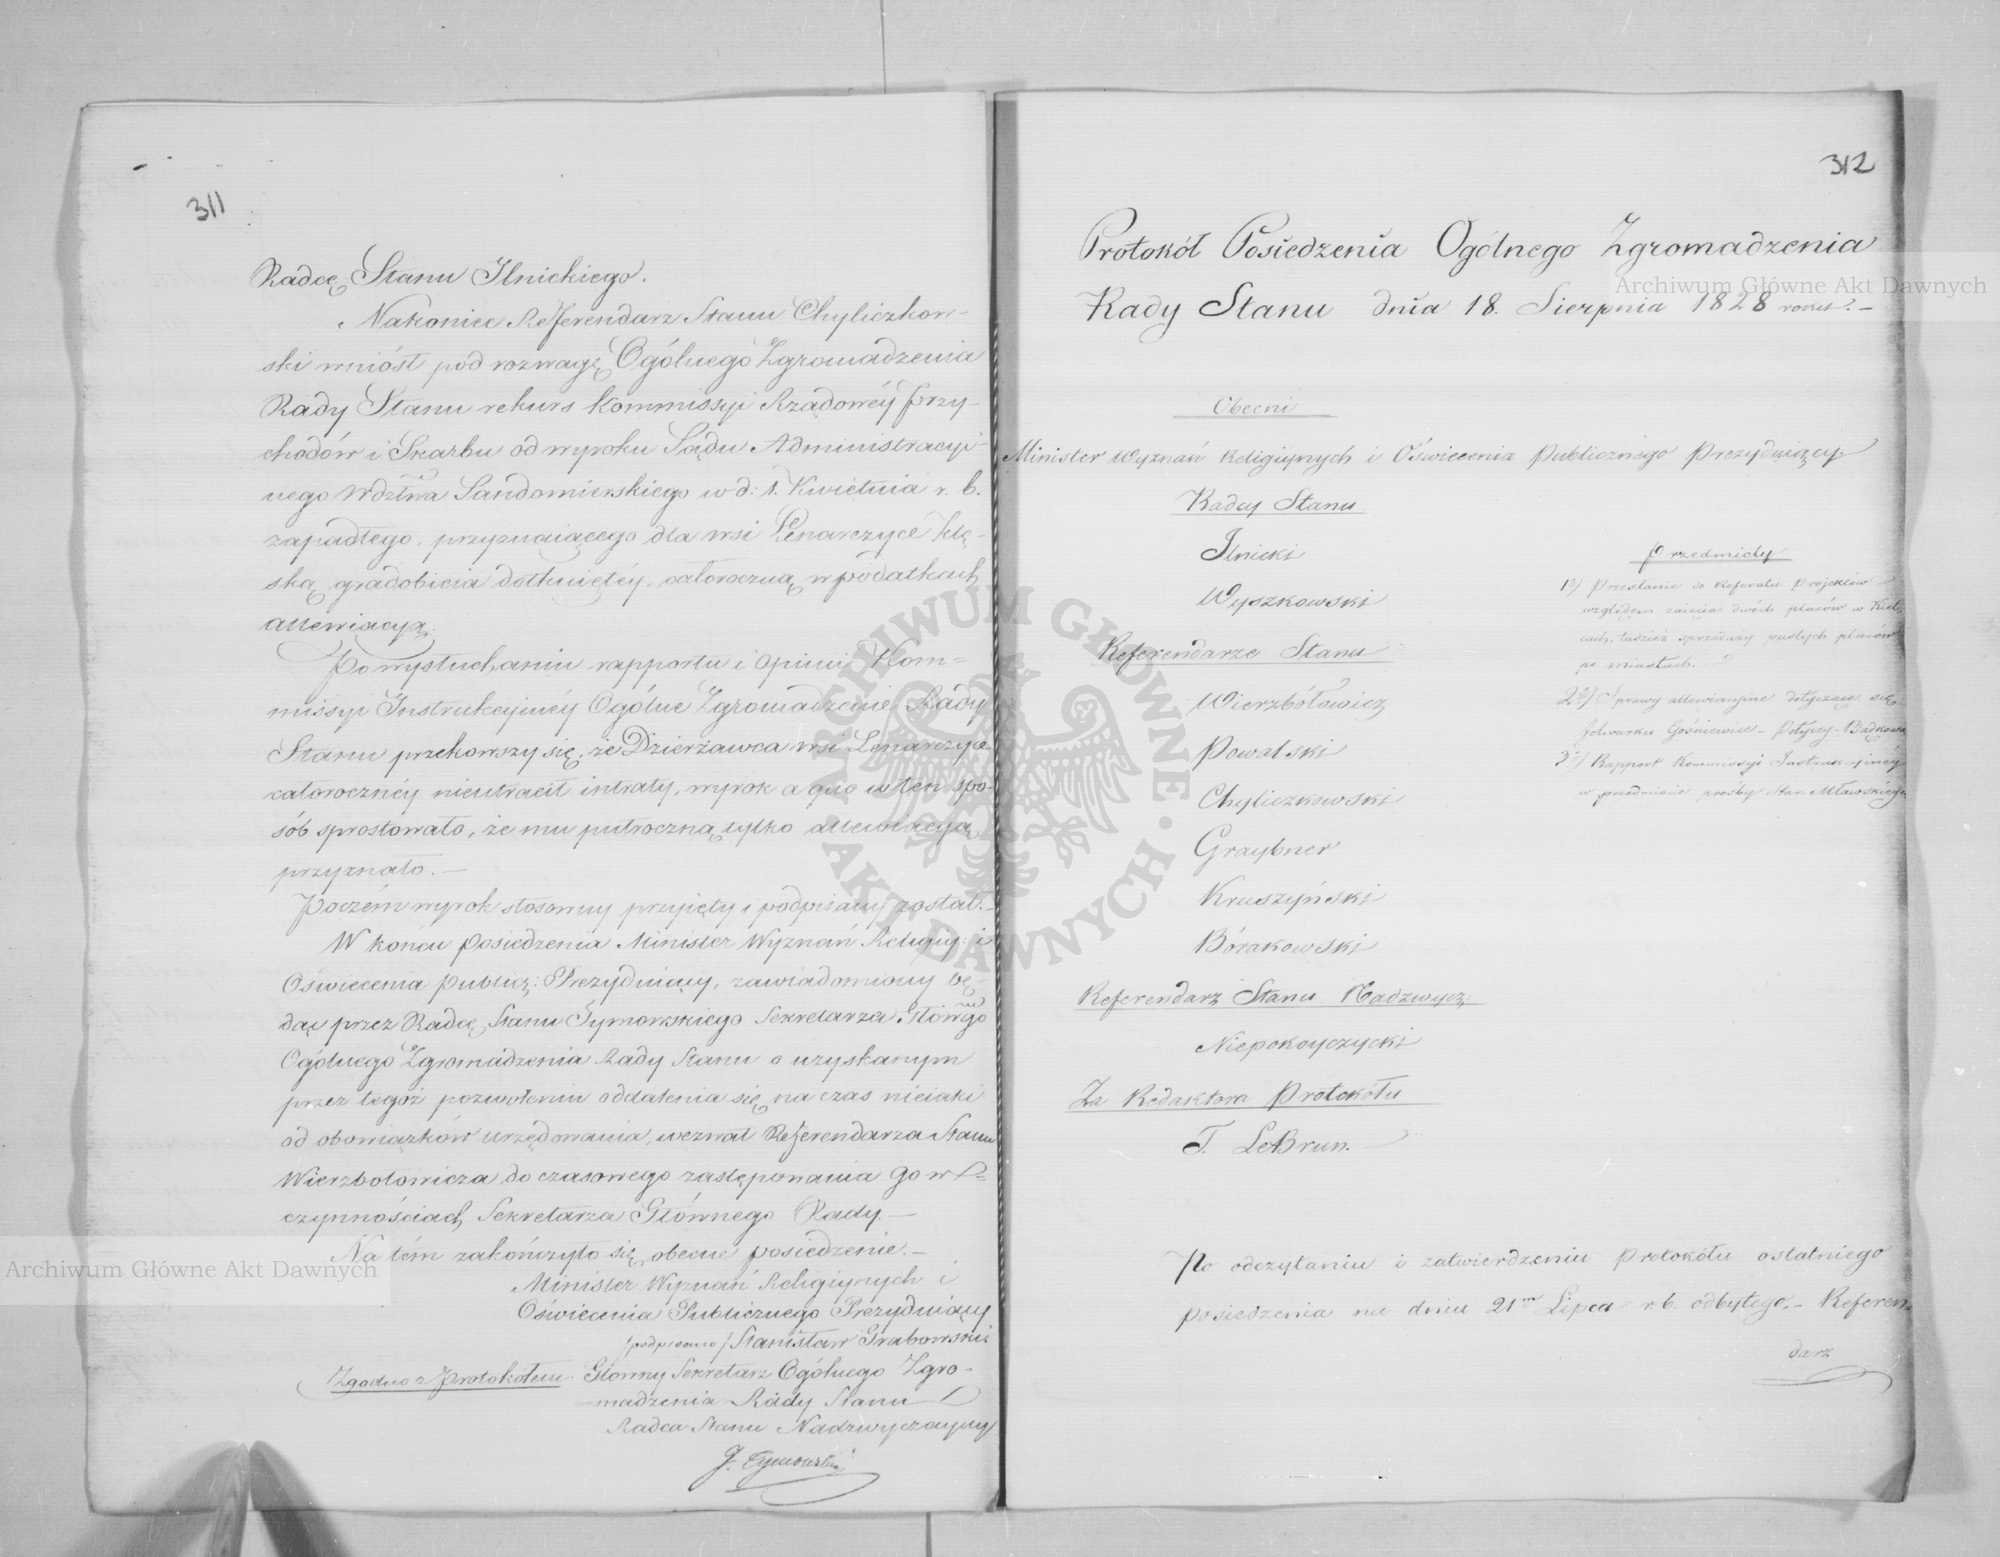 311
Radcę Stanu Ilnickiego.
Nakoniec Referendarz Stanu Chyliczkow-
ski wniósł pod rozwagę Ogólnego Zgromadzenia
Rady Stanu rekurs Kommissyi Rządowéy Przy-
chodów i Skarbu od wyroku Sądu Administracyi-
nego Wdztwa Sandomierskiego w d: 1. Kwietnia r. b.
zapadłego, przyznaiącego dla wsi Lenarczyce klę-
ską gradobicia dotkniętéy, całoroczną w podatkach
allewiacyą.
Po wysłuchaniu rapportu i opinii Kom-
missyi Instrukcyinéy Ogólne Zgromadzenie Rady
Stanu przekonawszy się, że Dzierżawca wsi Lenarczyce
całorocznéy nieutracił intraty, wyrok a quo w ten spo-
sób sprostowało, że mu półroczną tylko allewiacyą
przyznało. —
Poczém wyrok stosowny przyięty i podpisany został. —
W końcu posiedzenia Minister Wyznań Religiy: i
Oświecenia Publicz: Prezyduiący, zawiadomiony bę-
dąc przez Radcę Stanu Tymowskiego Sekretarza Główgo
Ogólnego Zgromadzenia Rady Stanu o uzyskanym
przez tegoż pozwoleniu oddalenia się na czas nieiaki
od obowiązków urzędowania, wezwał Referendarza Stanu
Wierzbołowicza do czasowego zastępowania go w
czynnościach Sekretarza Głównego Rady. —
Na tém zakończyło się obecne posiedzenie. —
Minister Wyznań Religiynych i
Oświecenia Publicznego Prezyduiący
/podpisano/ Stanisław Grabowski
Zgodno z Protokołem Głowny Sekretarz Ogólnego Zgro-
madzenia Rady Stanu
Radca Stanu Nadzwyczayny
J. Tymowski
312
Protokół Posiedzenia Ogólnego Zgromadzenia
Rady Stanu dnia 18. Sierpnia 1828 roku. —
Obecni
Minister Wyznań Religiynych i Oświecenia Publicznego Prezyduiący.
Radcy Stanu
Ilnicki
Wyszkowski
Referendarze Stanu
Wierzbółowicz
Powalski
Chyliczkowski
Graybner
Kruszyński
Bórakowski
Referendarz Stanu Nadzwycz:
Niepokoyczycki
Za Redaktora Protokółu
T. LeBrun.
Przedmioty
1o) Przesłanie do Referatu projektów
względem zaięcia dwóch placów w Kiel-
cach, tudzież sprzedaży pustych placów
po miastach.
2o) Sprawy allewiacyine dotyczące się
folwarku Gośniewic - Potyczy - Bądkowa
3o) Rapport Kommissyi Instrukcyinéy
w przedmiocie prośby Star. Mławskiego
Po odczytaniu i zatwierdzeniu protokółu ostatniego
posiedzenia na dniu 21m Lipca r. b. odbytego. — Referen-
darz
Archiwum Główne Akt Dawnych
Archiwum Główne Akt Dawnych
ARCHIWUM GŁÓWNE • AKT DAWNYCH •